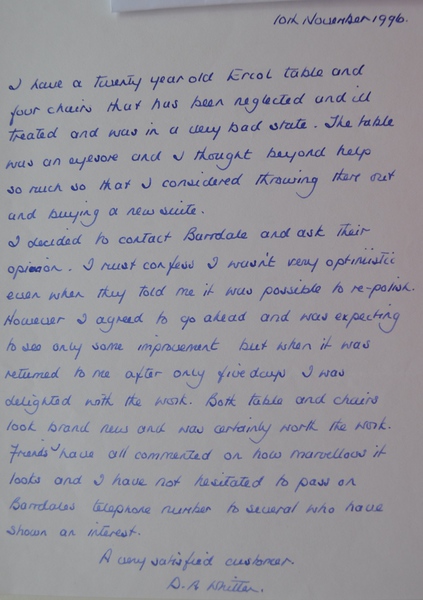 10th November 1996.
I have a twenty year old Ercol table and
four chairs that has been neglected and ill
treated and was in a very bad state. The table
was an eyesore and I thought beyond help
so much so that I considered throwing them out
and buying a new suite.
I decided to contact Barrdale and ask their
opinion. I must confess I wasn't very optimistic
even when they told me it was possible to re-polish.
However I agreed to go ahead and was expecting
to see only some improvement but when it was
returned to me after only five days I was
delighted with the work. Both table and chairs
look brand new and was certainly worth the work.
Friends have all commented on how marvellous it
looks and I have not hesitated to pass on
Barrdales telephone number to several who have
shown an interest.
A very satisfied customer.
D. R Whitten.